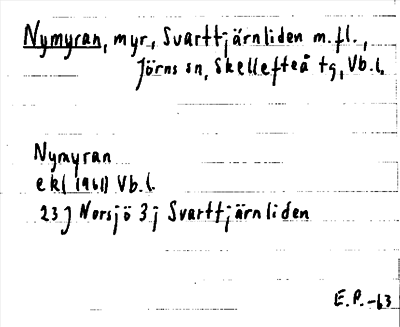 Nymyran, myr, Svarttjärnliden m.fl.,
Jörns sn, Skellefteå tg, Vb.l.
Nymyran
ekl (1961) Vb.l.
23 J Norsjö 3 j Svarttjärnliden
E.P.-63